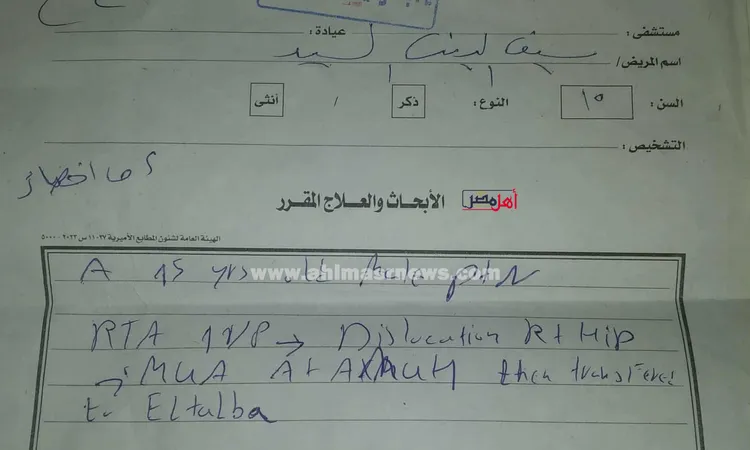 مستشفى : عيادة :
اسم المريض/ سيف الدين السيد
السن : ١٥ النوع: ذكر / أنثى
التشخيص :
أهل مصر الأبحاث والعلاج المقرر
الهيئة العامة لشئون المطابع الأميرية ١١٠٢٧ س ٢٠٢٣ - ٥٠٠٠
www.ahlmasrnews.com
A 15 yrs old male pt
RTA → Dislocation Rt Hip
→ MUA At then transferred
to Eltalba